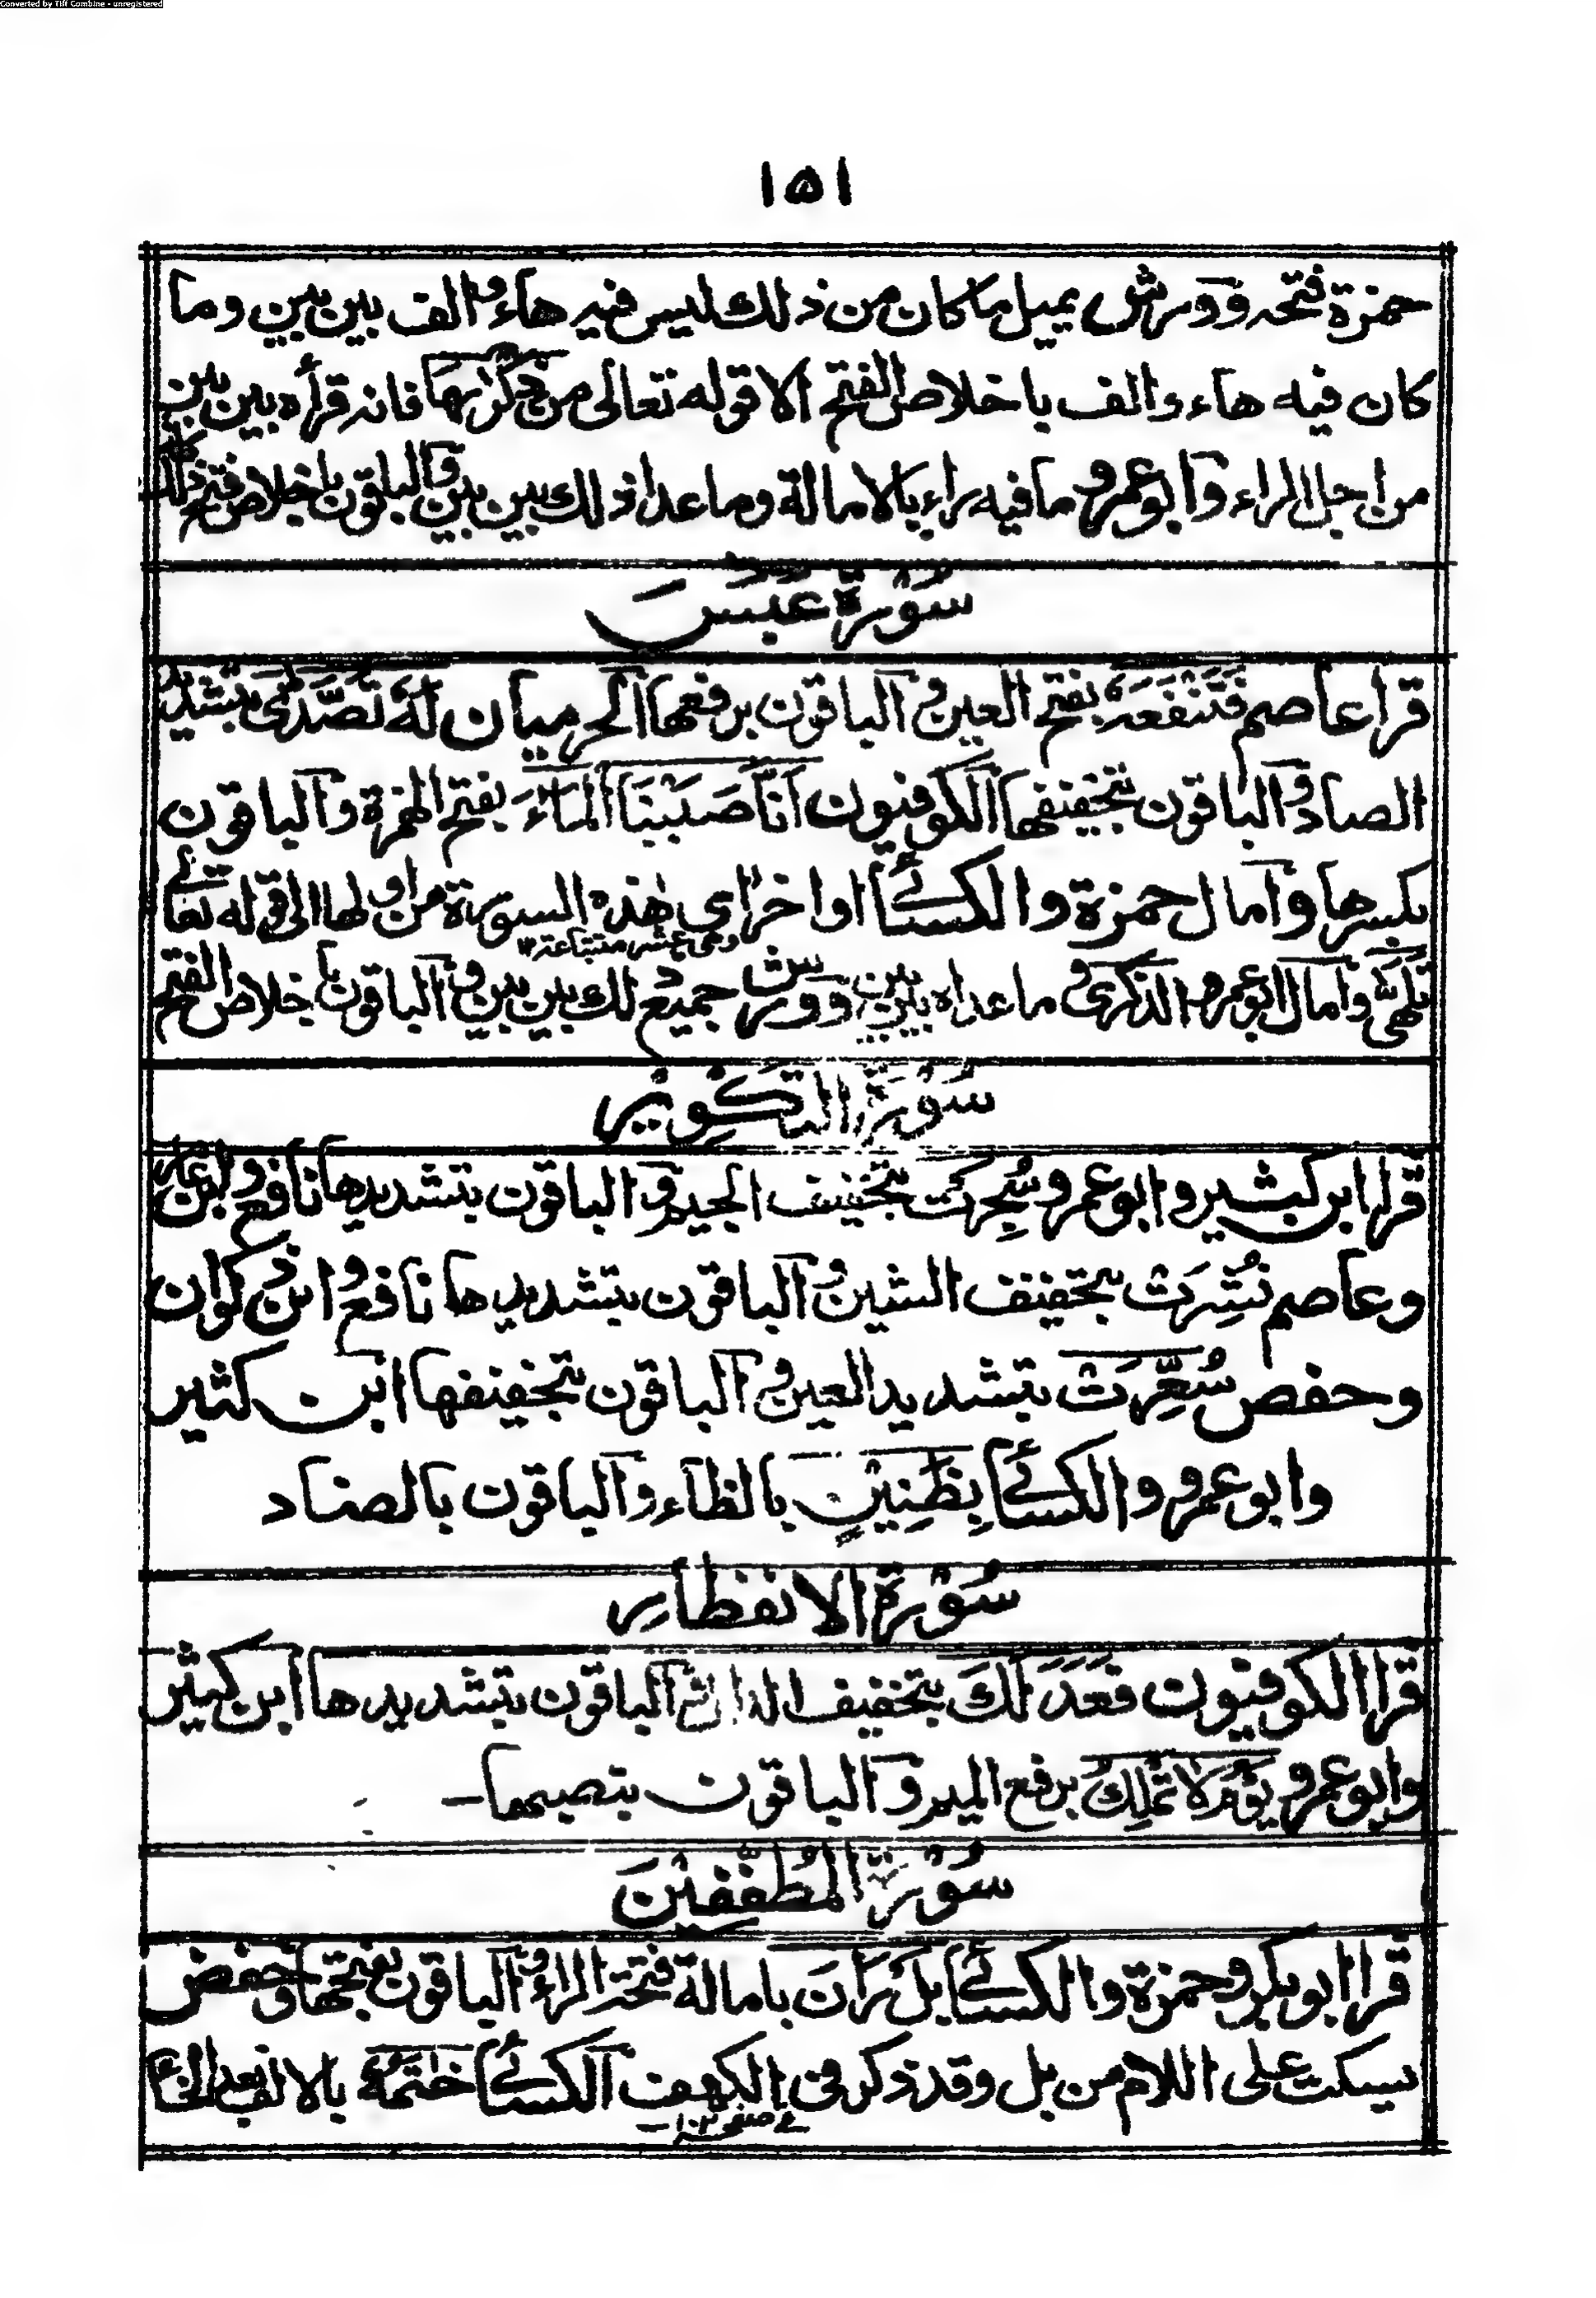 Converted by Tiff Combine - unregistered
١٥١
حمزة فتحه وورش يميل ما كان من ذلك ليس فيه هاء والف بين بين وما
كان فيه هاء والف باخلاص الفتح الا قوله تعالى من ذكرٰىها فانه قرأه بين بين
من اجل الراء وابو عمرو ما فيه راء بالامالة وما عدا ذلك بين بين والباقون باخلاص فتح ذلك كله
سُوْرَةُ عَبَسَ
قرا عاصم فَتَنْفَعَهُ بفتح العين والباقون برفعها الحرميان لَهٗ تَصَّدّٰى بتشديد
الصاد والباقون بتخفيفها الكوفيون اَنَّا صَبَبْنَا الْمَاءَ بفتح الهمزة والباقون
بكسرها وآمال حمزة والكسائے اواخر اٰى هٰذه السورة من اولها الى قوله تعالے
تَلَهّٰى وامال ابو عمرو الذكرى وما عداه بين بين وورش جميع ذلك بين بين والباقون باخلاص الفتح
وهى عشر متتابعة ١٢
سُوْرَةُ التَّكْوِيْرِ
قرا ابن كثير وابو عمرو سُجِرَتْ بتخفيف الجيم والباقون بتشديدها نافع وابن عامر
وعاصم نُشِرَتْ بتخفيف الشين والباقون بتشديدها نافع وابن ذكوان
وحفص سُعِّرَتْ بتشديد العين والباقون بتخفيفها ابن كثير
وابو عمرو والكسائے بِظَنِيْنٍ بالظاء والباقون بالضاد
سُوْرَةُ الانفطارِ
قرا الكوفيون فَعَدَلَكَ بتخفيف الدال والباقون بتشديدها ابن كثير
وابو عمرو يَوْمُ لَا تَمْلِكُ برفع الميم والباقون بنصبها -
سُوْرَةُ الْمُطَفِّفِيْنَ
قرا ابو بكر وحمزة والكسائے بَلْ رَّانَ بامالة فتحة الراء والباقون بفتحها وحفص
يسكت على اللام من بل وقد ذكر فى الكهف الكسائے خٰتَمُهٗ بالالف بعد الخاء